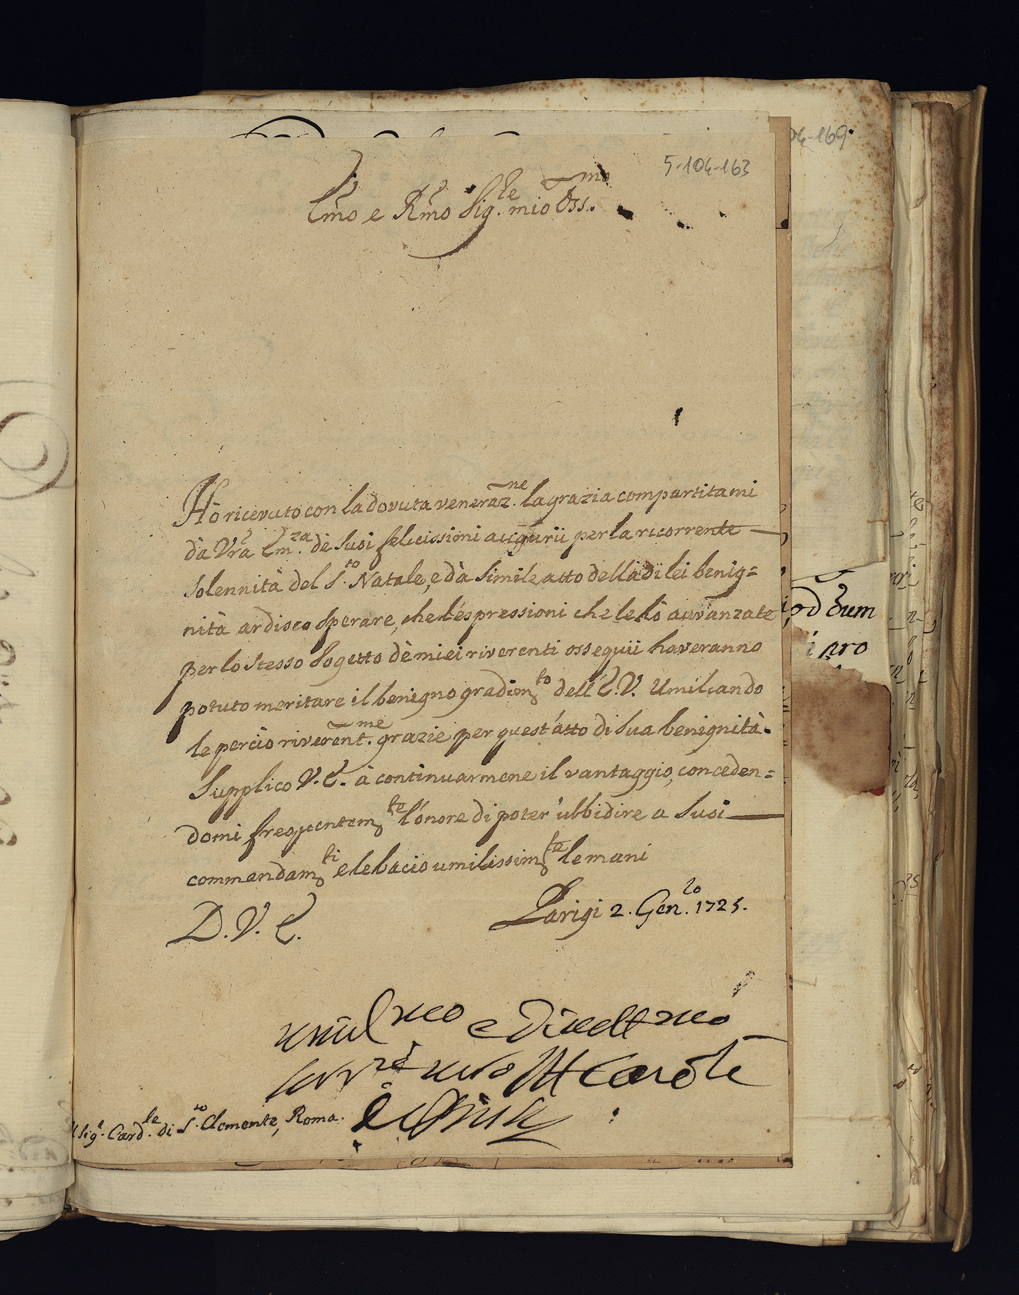 5-104-163
04-169.
Em̃o e Rm̃o Sig.re mio Oss.mo
Hò ricevuto con la dovuta veneraz.ne la grazia compartitami
dà Vr̃a Em.za dè suoi felicissimi augurii per la ricorrente
solennità del S.to Natale, e dà simile atto della di lei benig=
nità ardisco sperare, che l'espressioni che le hò avvanzate
per lo stesso sogetto dè miei riverenti ossequii haveranno
potuto meritare il benigno gradim.to dell'E.V. Umiliando
le perciò riverent.me grazie per quest'atto di sua benignità.
Supplico V.E. à continuarmene il vantaggio, conceden=
domi frequentem.te l'onore di poter ubbidire a suoi
commandam.ti e le bacio umilissim.te le mani
D.V.E.
Parigi 2. Gen.ro 1725.
umil.mo e
Sig.r Card.le di S.to Clemente, Roma.